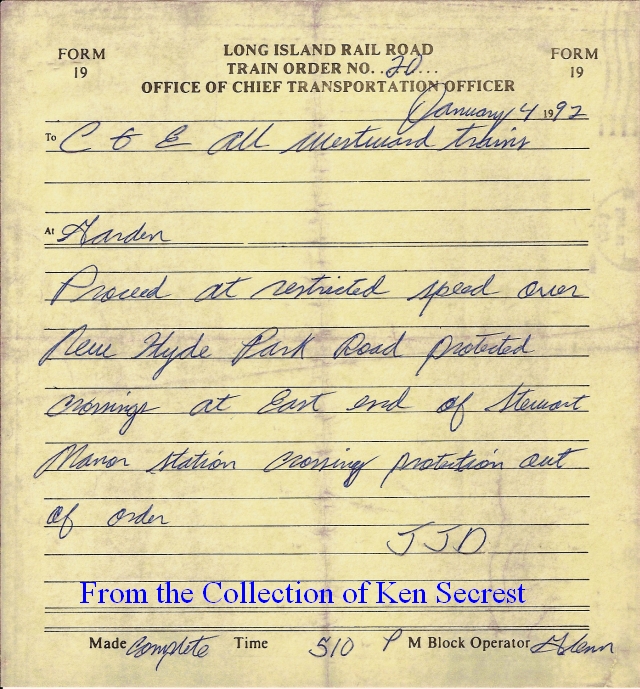 FORM 19
LONG ISLAND RAIL ROAD
FORM 19
TRAIN ORDER NO. . 20 . . .
OFFICE OF CHIEF TRANSPORTATION OFFICER
January 4 1992
To C & E all westward trains
At Garden
Proceed at restricted speed over
New Hyde Park Road protected
crossings at East end of Stewart
Manor station crossing protection out
of order
JJD
From the Collection of Ken Secrest
Made Complete Time 510 P M Block Operator Glenn